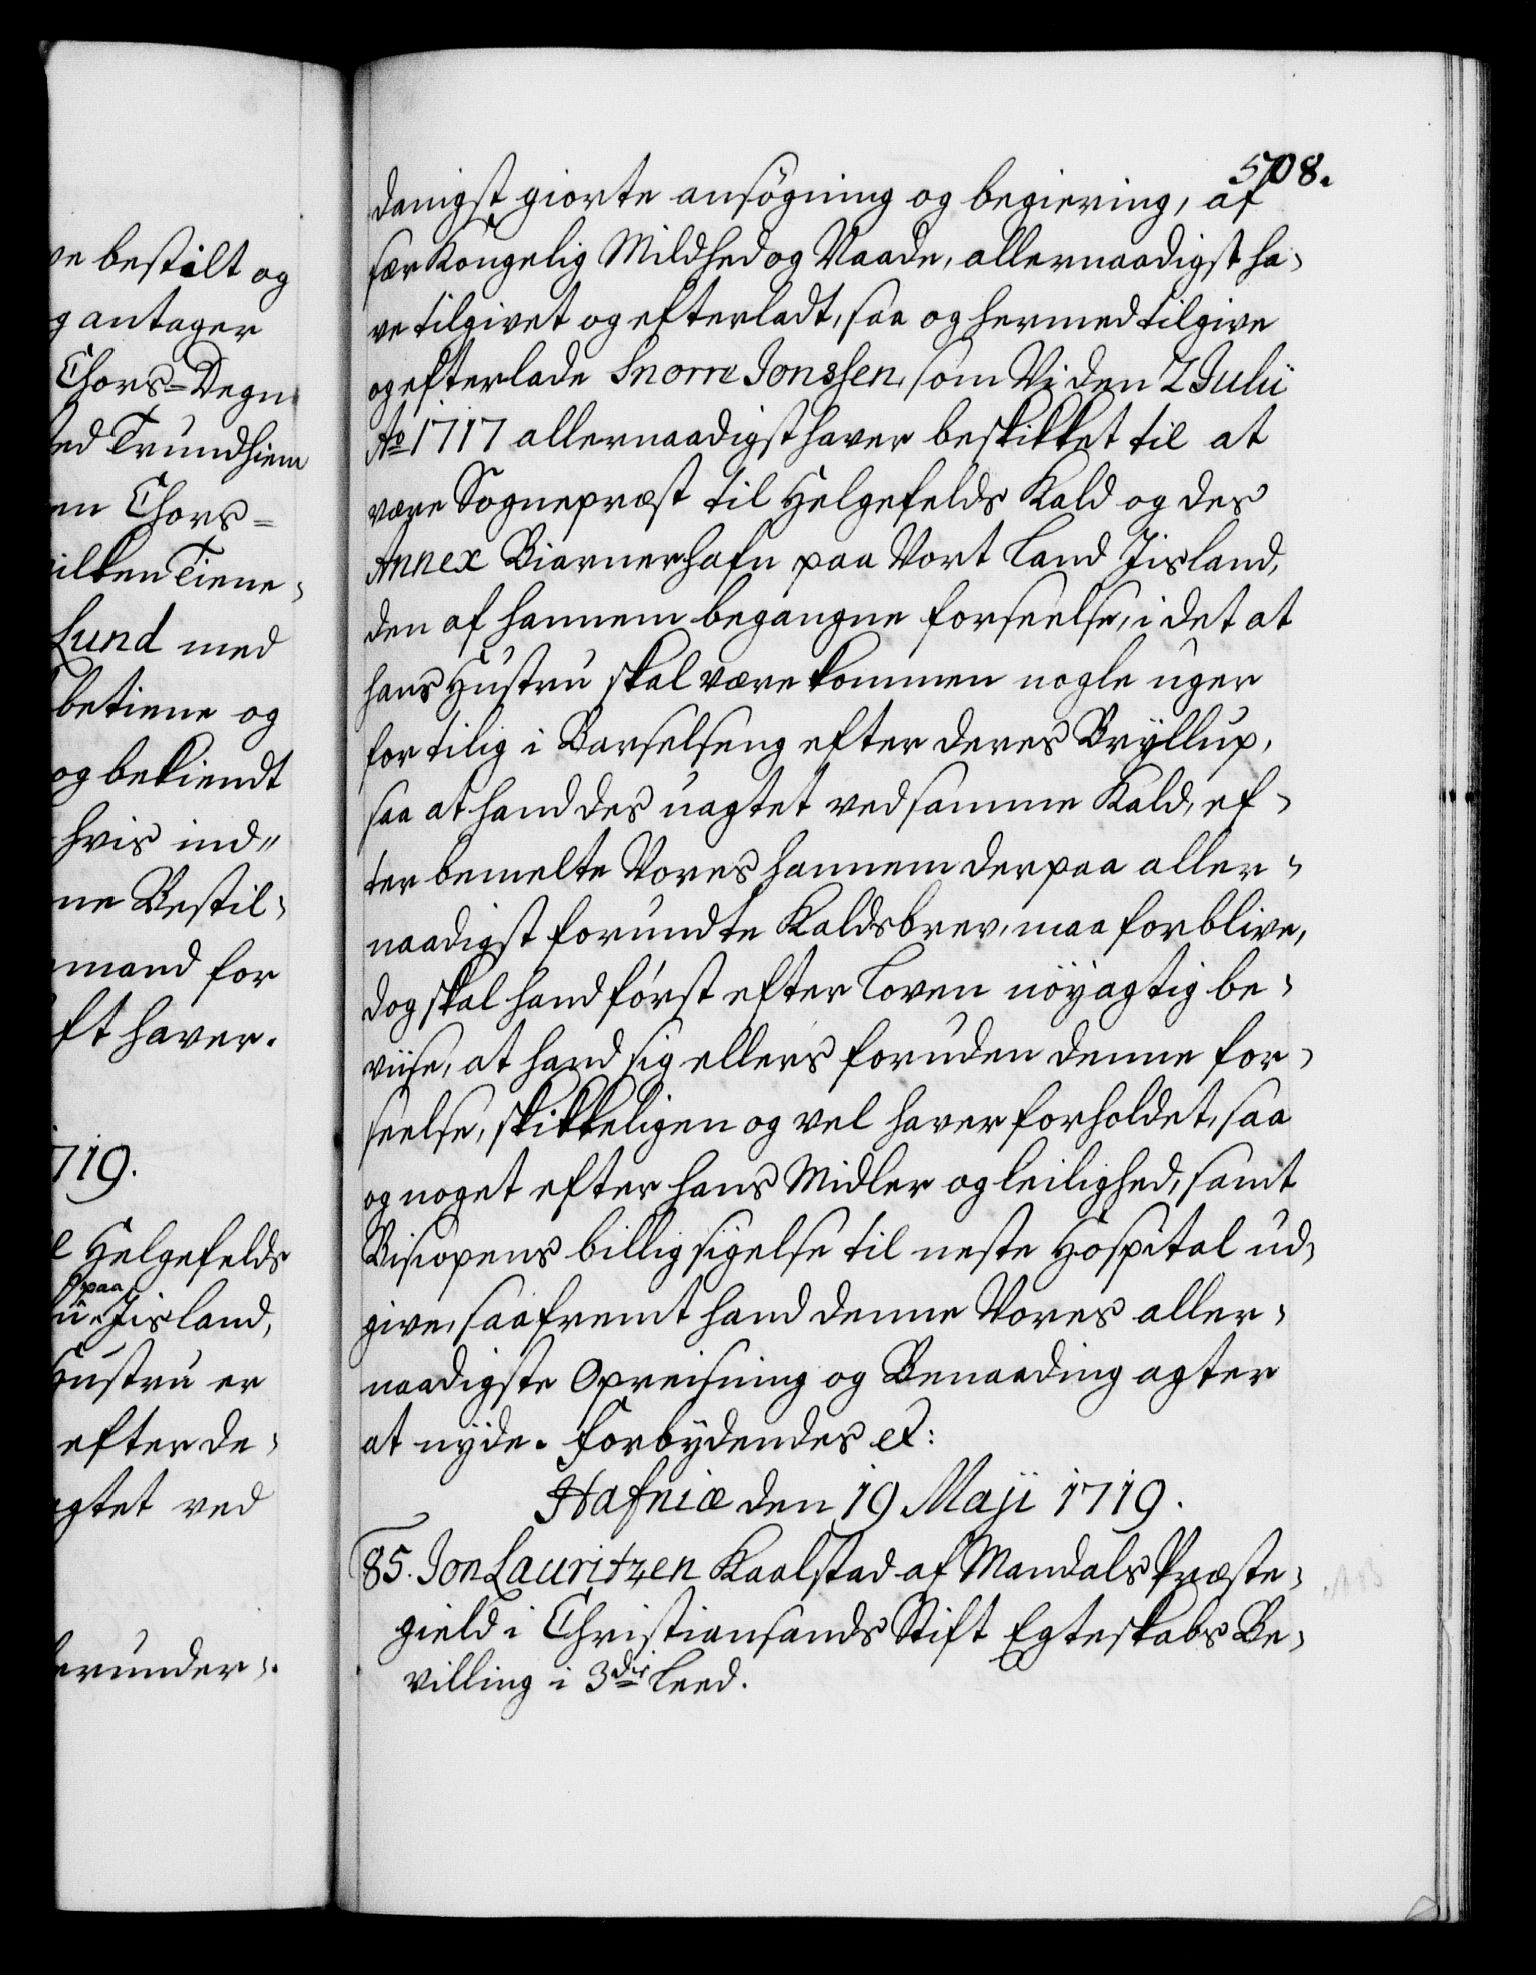 ve bestilt og
g antager
Chors-Degn
ed Trundhiem
en Chors=
ilken Tiene-
Lund med
betiene og
og bekiendt
hvis ind"
ne Bestil-
mand for
ft haver.
1719.
l Helgefelds
paa
u Jisland,
Hustru er
efter de-
agtet ved
erunder.
508.
danigst giorte ansøgning og begiering, af
sær Kongelig Mildhed og Naade, allernaadigst ha-
ve tilgivet og efterladt, saa og hermed tilgive
og efterlade Snorre Jonssen, som Vi den 2 Julii
Ao 1717 allernaadigst haver beskikket til at
være Sognepræst til Helgefelds Kald og des
Annex Biarnerhafn paa Vort Land Jisland,
den af hannem begangne forseelse, i det at
hans Hustru skal være kommen nogle uger
for tilig i Barselseng efter deres Bryllup,
saa at hand des uagtet ved samme Kald, ef-
ter bemelte Vores hannem derpaa aller-
naadigst forundte Kaldsbrev, maa forblive,
dog skal hand først efter Loven nøyagtig be-
viise, at hand sig ellers foruden denne for-
seelse, skikkeligen og vel haver forholdet, saa
og noget efter hans Midler og leilighed, samt
Bisopens billig sigelse til neste Hospital ud-
give, saafremt hand denne Vores aller-
naadigste Opreisning og Benaading agter
at nyde. Forbydendes etc:
Hafniæ den 19 Maji 1719.
85. Jon Lauritzen Kaalstad af Mandals Præste-
gield i Christiansands Stift Egteskabs Be-
villing i 3die Leed.